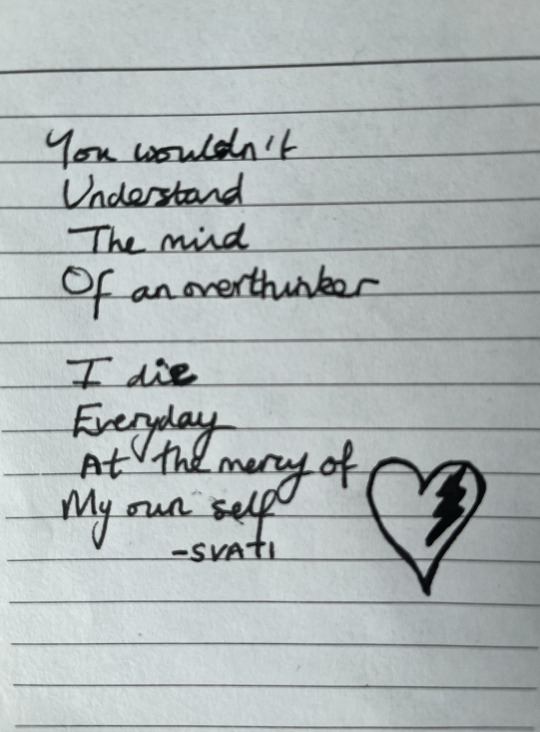 You wouldn't
Understand
The mind
Of an overthinker
I die
Everyday
At the mercy of
My own self
-SVATI